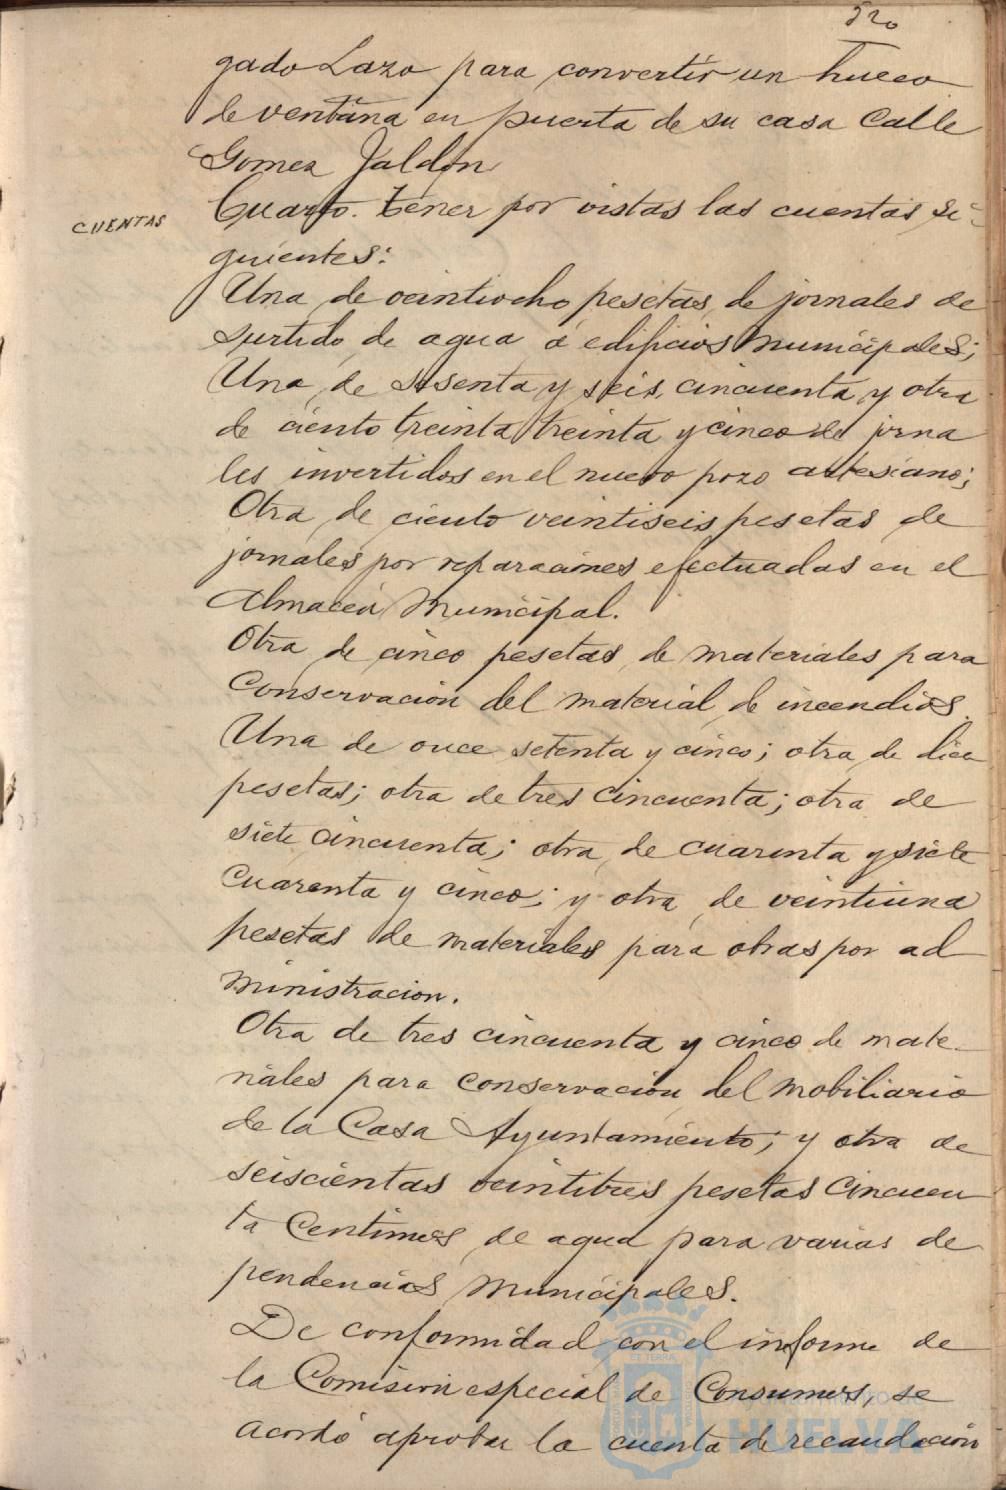 520
gado Lazo para convertir un hueco
de ventana en puerta de su casa Calle
Gomez Jaldon
CUENTAS
Cuarto. tener por vistas las cuentas si-
guientes:
Una de veintiocho pesetas de jornales de
surtido de agua á edificios municipales;
Una de sesenta y seis, cincuenta y otra
de ciento treinta treinta y cinco de jorna
les invertidos en el nuevo pozo artesiano;
Otra de ciento veintiseis pesetas de
jornales por reparaciones efectuadas en el
Almacen Municipal.
Otra de cinco pesetas de materiales para
Conservacion del material de incendios.
Una de once setenta y cinco; otra de diez
pesetas; otra de tres cincuenta; otra de
siete cincuenta; otra de cuarenta y siete
cuarenta y cinco; y otra de veintiuna
pesetas de materiales para obras por ad
ministracion.
Otra de tres cincuenta y cinco de mate-
riales para conservacion del mobiliario
de la Casa Ayuntamiento; y otra de
seiscientas veintitres pesetas cincuen
ta centimos de agua para varias de
pendencias municipales.
De conformidad con el informe de
la Comision especial de Consumos, se
acordó aprobar la cuenta de recaudacion
Ayuntamiento de
HUELVA